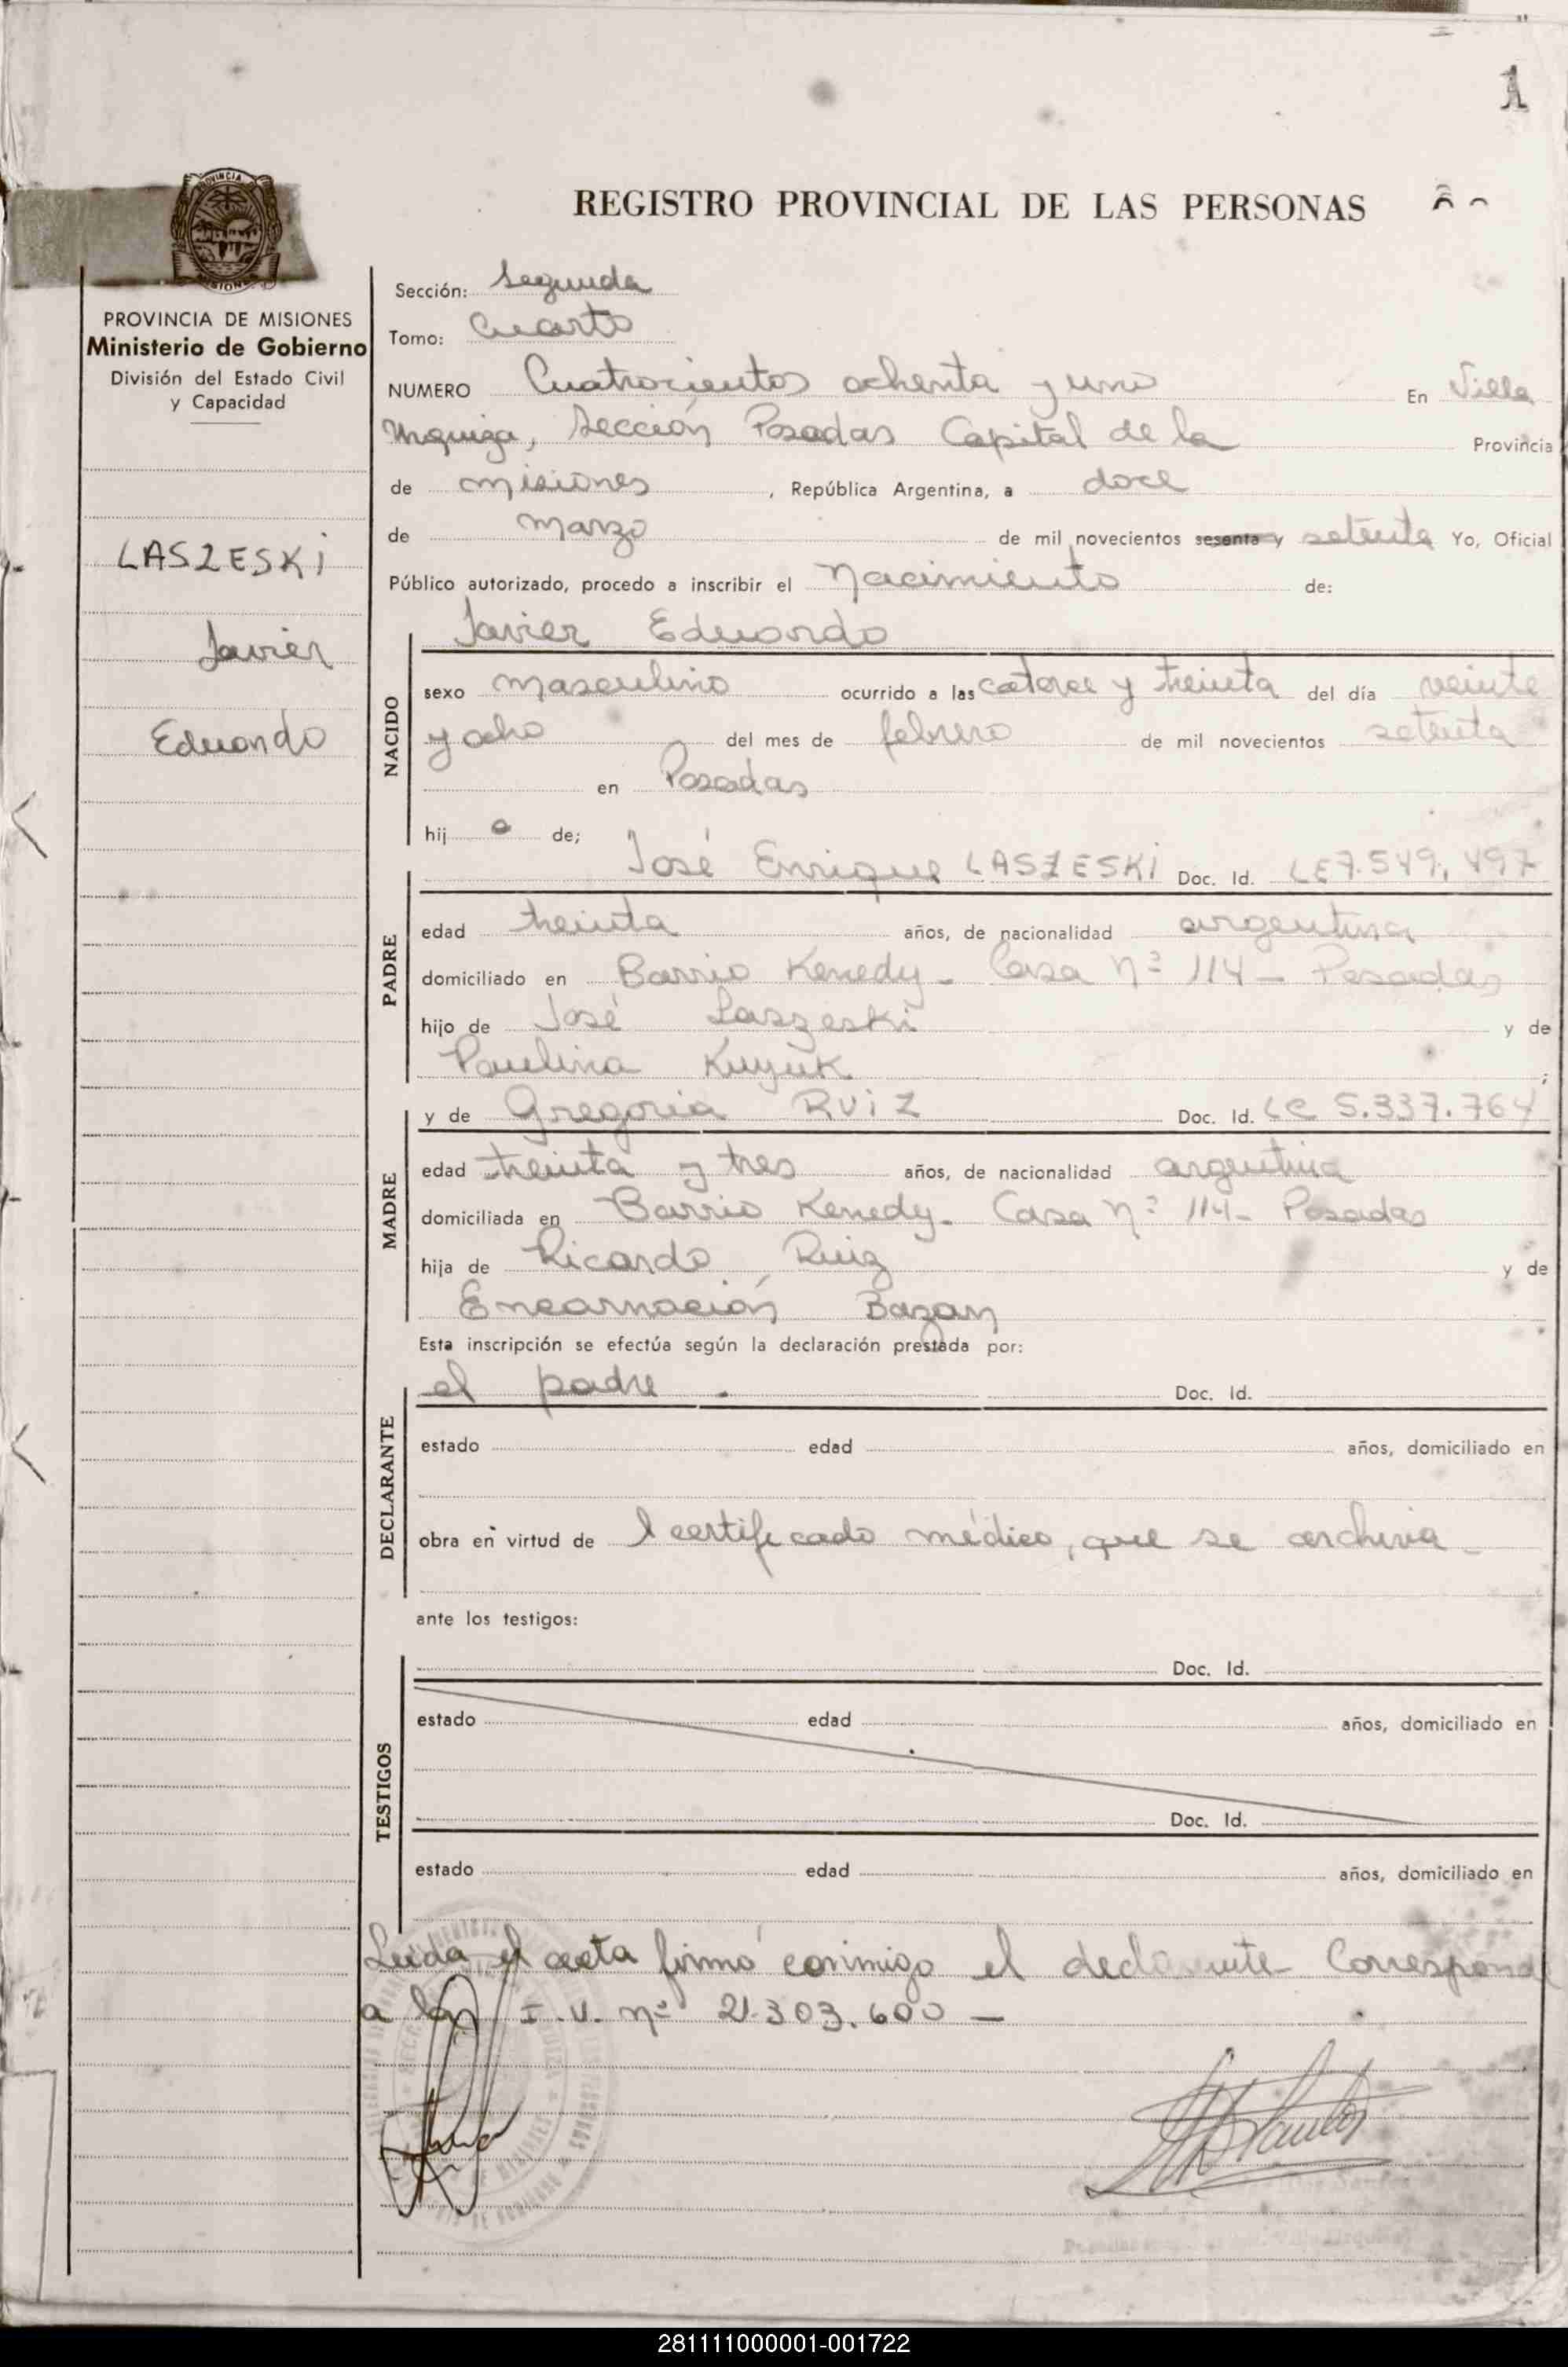 1
REGISTRO PROVINCIAL DE LAS PERSONAS
PROVINCIA
MISIONES
PROVINCIA DE MISIONES
Ministerio de Gobierno
División del Estado Civil
y Capacidad
LASZESKI
Javier
Eduardo
Sección: Segunda
Tomo: Cuarto
NUMERO Cuatrocientos ochenta y uno En Villa
Urquiza, Sección Posadas Capital de la Provincia
de misiones, República Argentina, a doce
de marzo de mil novecientos sesenta y setenta Yo, Oficial
Público autorizado, procedo a inscribir el nacimiento de:
Javier Eduardo
NACIDO
sexo masculino ocurrido a las catorce y treinta del día veinte
y ocho del mes de febrero de mil novecientos setenta
en Posadas
hij o de;
José Enrique LASZESKI Doc. Id. LE 7.549.497
PADRE
edad treinta años, de nacionalidad argentina
domiciliado en Barrio Kenedy - Casa Nº 114 - Posadas
hijo de José Laszeski y de
Paulina Kuyuk ;
y de Gregoria RUIZ Doc. Id. LC 5.337.764
MADRE
edad treinta y tres años, de nacionalidad argentina
domiciliada en Barrio Kenedy - Casa Nº 114 - Posadas
hija de Ricardo Ruiz y de
Encarnación Bazan
Esta inscripción se efectúa según la declaración prestada por:
el padre . Doc. Id.
DECLARANTE
estado edad años, domiciliado en
obra en virtud de l certificado médico, que se archiva -
ante los testigos:
Doc. Id.
TESTIGOS
estado edad años, domiciliado en
Doc. Id.
estado edad años, domiciliado en
Leida el acta firmó conmigo el declarante - Corresponde
a la I.V. nº 21.303.600 -
281111000001-001722